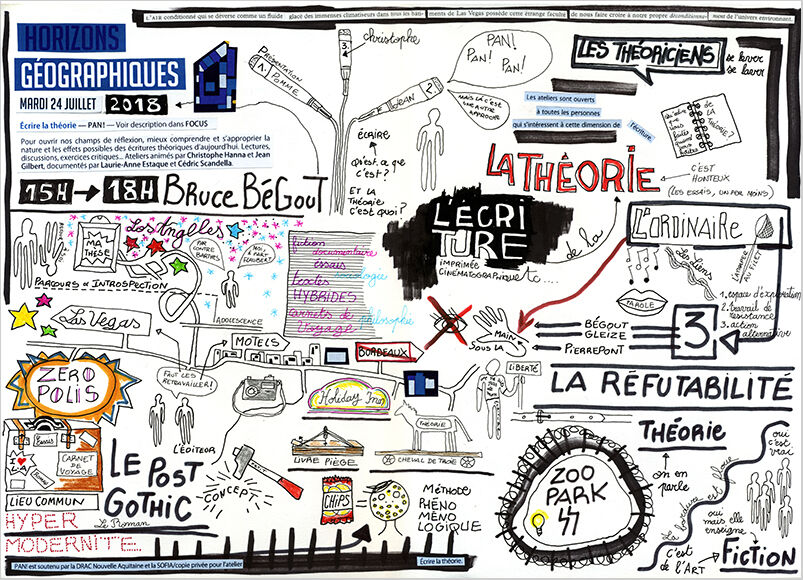 L'AIR conditionné qui se déverse comme un fluide glacé des immenses climatiseurs dans tous les bâtiments de Las Vegas possède cette étrange faculté de nous faire croire à notre propre déconditionnement de l'univers environnant.
HORIZONS
GÉOGRAPHIQUES
MARDI 24 JUILLET 2018
Écrire la théorie — PAN! — Voir description dans FOCUS
Pour ouvrir nos champs de réflexion, mieux comprendre et s'approprier la
nature et les effets possibles des écritures théoriques d'aujourd'hui. Lectures,
discussions, exercices critiques... Ateliers animés par Christophe Hanna et Jean
Gilbert, documentés par Laurie-Anne Estaque et Cédric Scandella.
15H → 18H BRUCE BÉGOUT
1. PRÉSENTATION
POMME
3. christophe
JEAN 2
PAN!
PAN! PAN!
MAIS LÀ C'EST
UNE AUTRE
APPROCHE
ÉCRIRE
qu'est-ce que
c'est?
ET LA
THÉORIE
c'est quoi?
LES THÉORICIENS
se lever
se laver
Les ateliers sont ouverts
à toutes les personnes
qui s'intéressent à cette dimension de l'écriture.
DE LA
THÉORIE?
C'EST
HONTEUX
(LES ESSAIS, UN PEU MOINS)
LA THÉORIE
de la
L'ÉCRI
TURE
IMPRIMÉE
CINÉMATOGRAPHIQUE
etc....
L'ORDINAIRE
Les liens
LA PÊCHE
AU FILET
PAROLE
1. espace d'exploration
2. travail de
résistance
3. action
alternative
3
BÉGOUT
GLEIZE
PIERREPONT
MAIN
SOUS LA
Los Angeles
MA
THÈSE
PAR CONTRE
BARTHES
MOI, À PART
FLAUBERT
PARCOURS et INTROSPECTION
ADOLESCENCE
fiction
documentaire
essais
sociologie
textes
HYBRIDES
carnets de
Voyage
philosophie
Las Vegas
MOTELS
BORDEAUX
ZÉRO
POLIS
FAUT LES
RETRAVAILLER!
L'ÉDITEUR
Essais
CARNET
DE
VOYAGE
L.A.
LIEU COMMUN
HYPER
MODERNITE
LE POST
GOTHIC
CONCEPT
Holiday Inn
LIVRE PIÈGE
THÉORIE
CHEVAL DE TROIE
LIBERTÉ
CHIPS
MÉTHODE
PHÉNO
MÉNO
LOGIQUE
LA RÉFUTABILITÉ
ZOO
PARK
THÉORIE
on en
parle
La bordure est floue
oui
c'est
vrai
oui
mais elle
enseigne
c'est
de l'ART
FICTION
PAN! est soutenu par la DRAC Nouvelle Aquitaine et la SOFIA/copie privée pour l'atelier
Écrire la théorie.